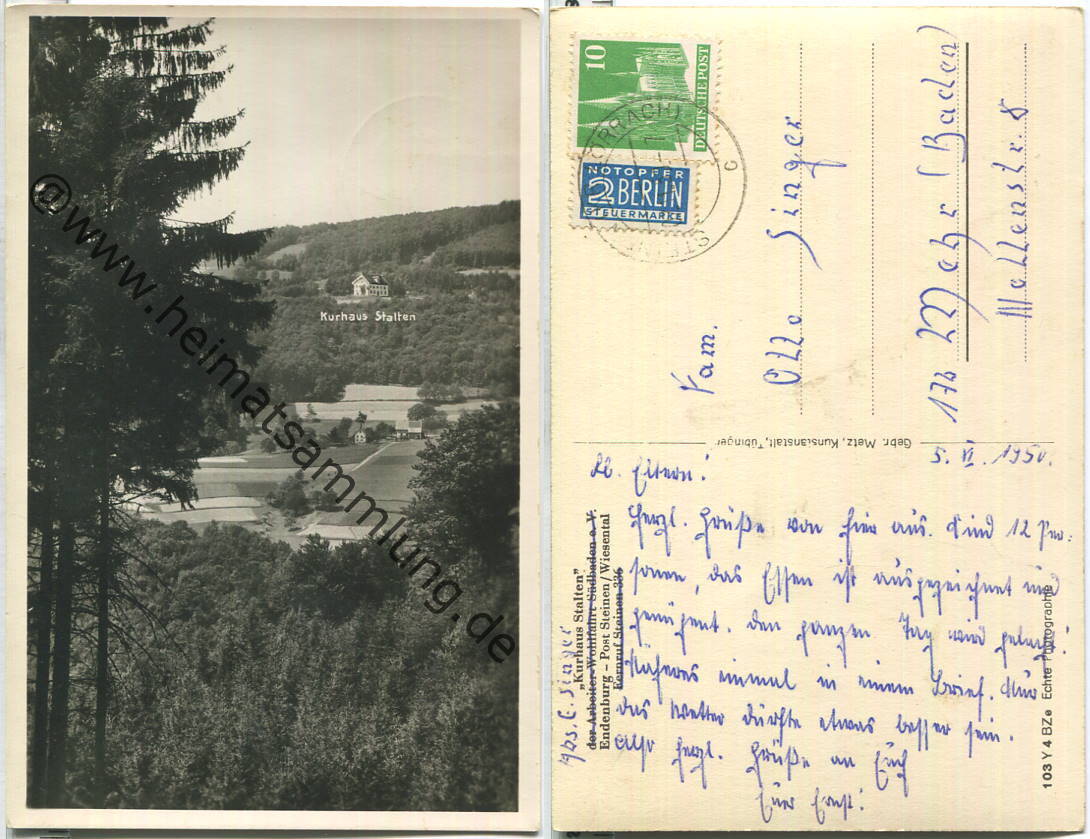 Kurhaus Stalten
@www.heimatsammlung.de
10
DEUTSCHE POST
NOTOPFER
2 BERLIN
STEUERMARKE
LÖRRACH
STEINEN
c
Fam.
Otto Singer
17b Wehr (Baden)
Gebr. Metz, Kunstanstalt, Tübingen
5. VI. 1950.
Lb. Eltern!
Herzl. Grüße von hier aus. Sind 12 Per-
sonen, das Essen ist ausgezeichnet und
genügend. Den ganzen Tag wird gelegt!
Näheres einmal in einem Brief. Nur
das Wetter dürfte etwas besser sein.
Also herzl. Grüße an Euch
Euer Ernst!
Abs. E. Singer
„Kurhaus Stalten”
der Arbeiter-Wohlfahrt Südbaden e. V.
Endenburg – Post Steinen / Wiesental
Fernruf Steinen 336
103 Y 4 BZe Echte Photographie